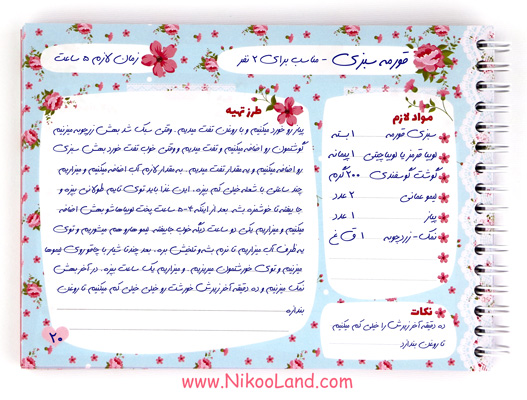 قورمه سبزی - مناسب برای ۲ نفر
زمان لازم ۵ ساعت
مواد لازم
سبزی قورمه ۱ بسته
لوبیا قرمز یا لوبیا چیتی ۱ پیمانه
گوشت گوسفندی ۲۰۰ گرم
لیمو عمانی ۲ عدد
پیاز ۱ عدد
نمک - زردچوبه ۱ ق غ
نکات
ده دقیقه آخر زیرش را خیلی کم میکنیم
تا روغن بندازد
طرز تهیه
پیاز رو خورد میکنیم و با روغن تفت میدیم. وقتی سبک شد بهش زردچوبه میزنیم
گوشتمون رو اضافه میکنیم و تفت میدیم و وقتی خوب تفت خورد بهش سبزی
رو اضافه میکنیم و یه مقدار تفت میدیم. یه مقدار لازم آب اضافه میکنیم و میزاریم
چند ساعتی با شعله خیلی کم بپزه. این غذا باید توی تایم طولانی بپزه و
جا بیفته تا خوشمزه بشه. بعد از اینکه ۴-۵ ساعت پخت لوبیاها شو بهش اضافه
میکنیم و میزاریم یکی دو ساعت دیگه خوب جا بیفته. لیموها رو هم میشوریم و توی
یه ظرف آب میزاریم تا نرم بشه و تلخیش بره. بعد چند تا شیار با چاقو روی لیموها
میزنیم و توی خورشتمون میریزیم. و میزاریم یک ساعت بپزه. در آخر بهش
نمک میزنیم و ده دقیقه آخر زیرش خورشت رو خیلی خیلی کم میکنیم تا روغن
بندازه
۲۰
www.NikooLand.com